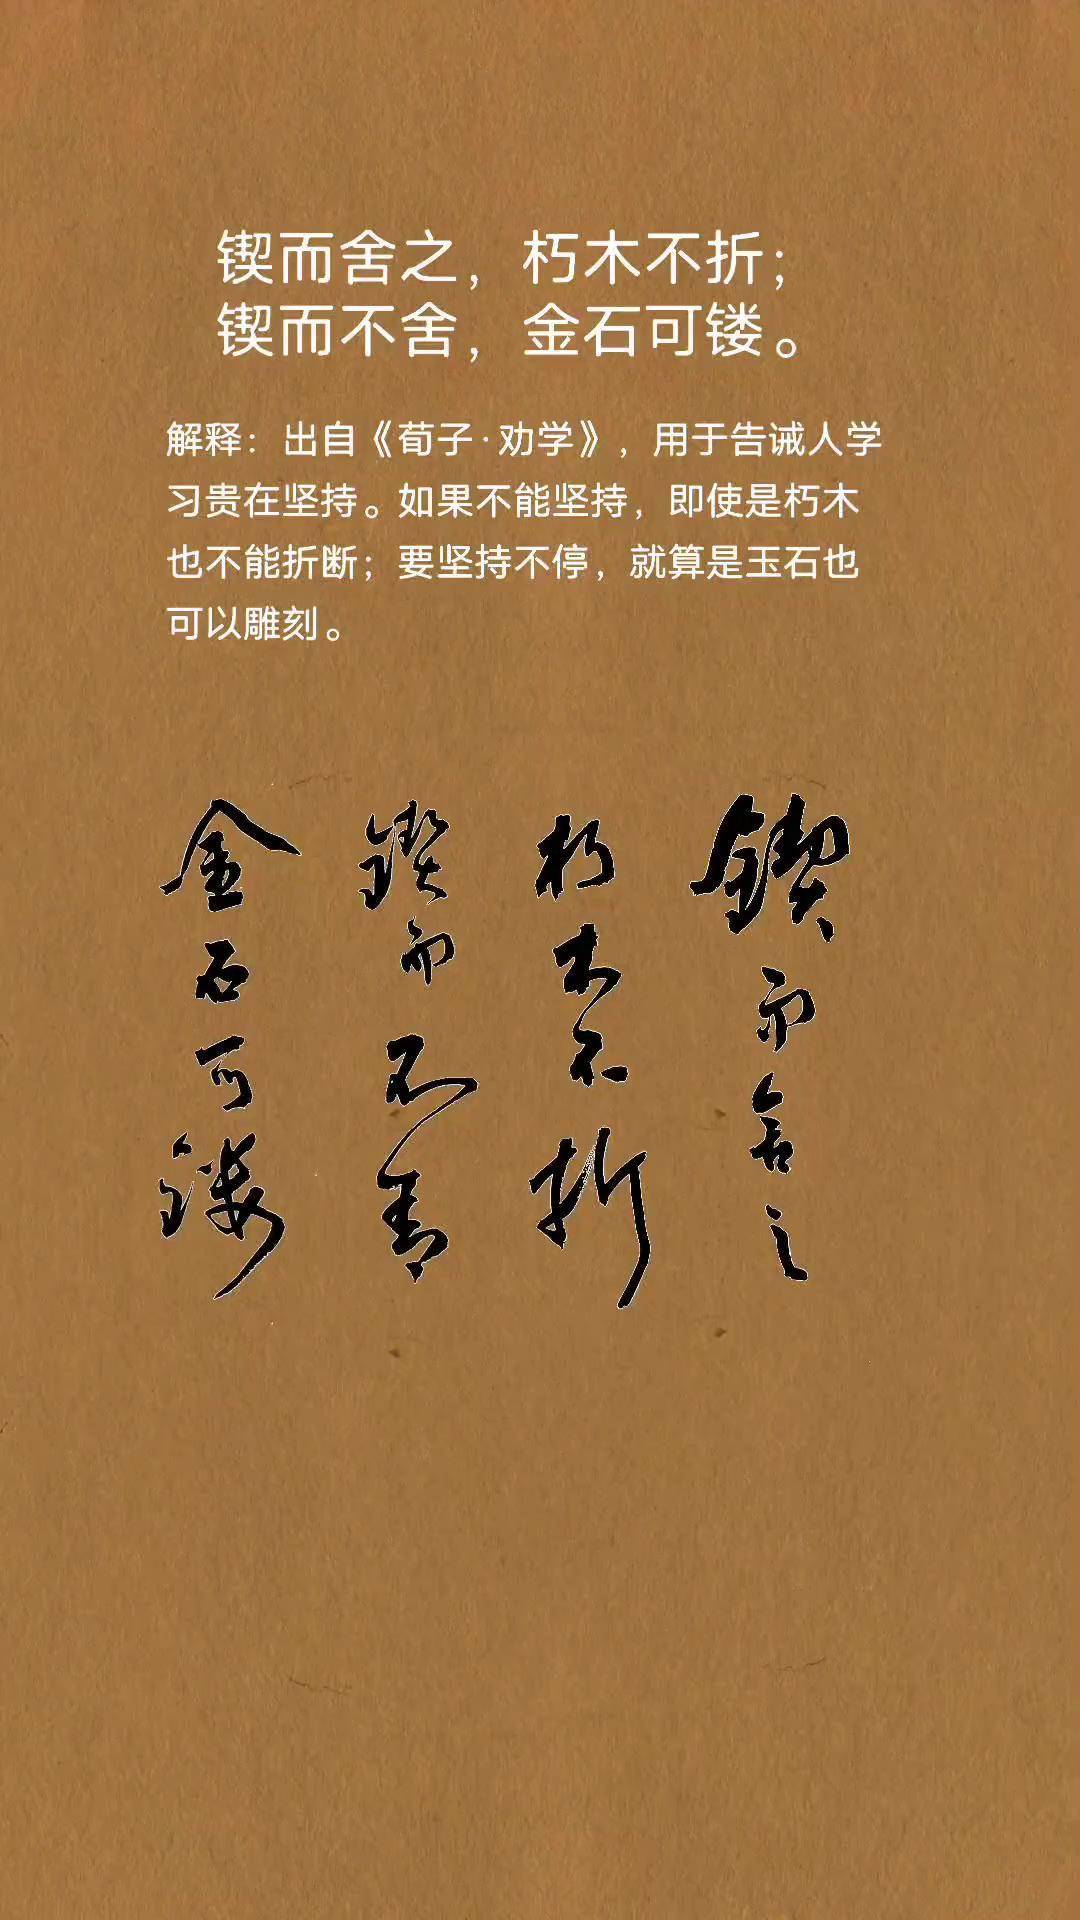 锲而舍之，朽木不折；
锲而不舍，金石可镂。
解释：出自《荀子·劝学》，用于告诫人学
习贵在坚持。如果不能坚持，即使是朽木
也不能折断；要坚持不停，就算是玉石也
可以雕刻。
锲而舍之
朽木不折
锲而不舍
金石可镂